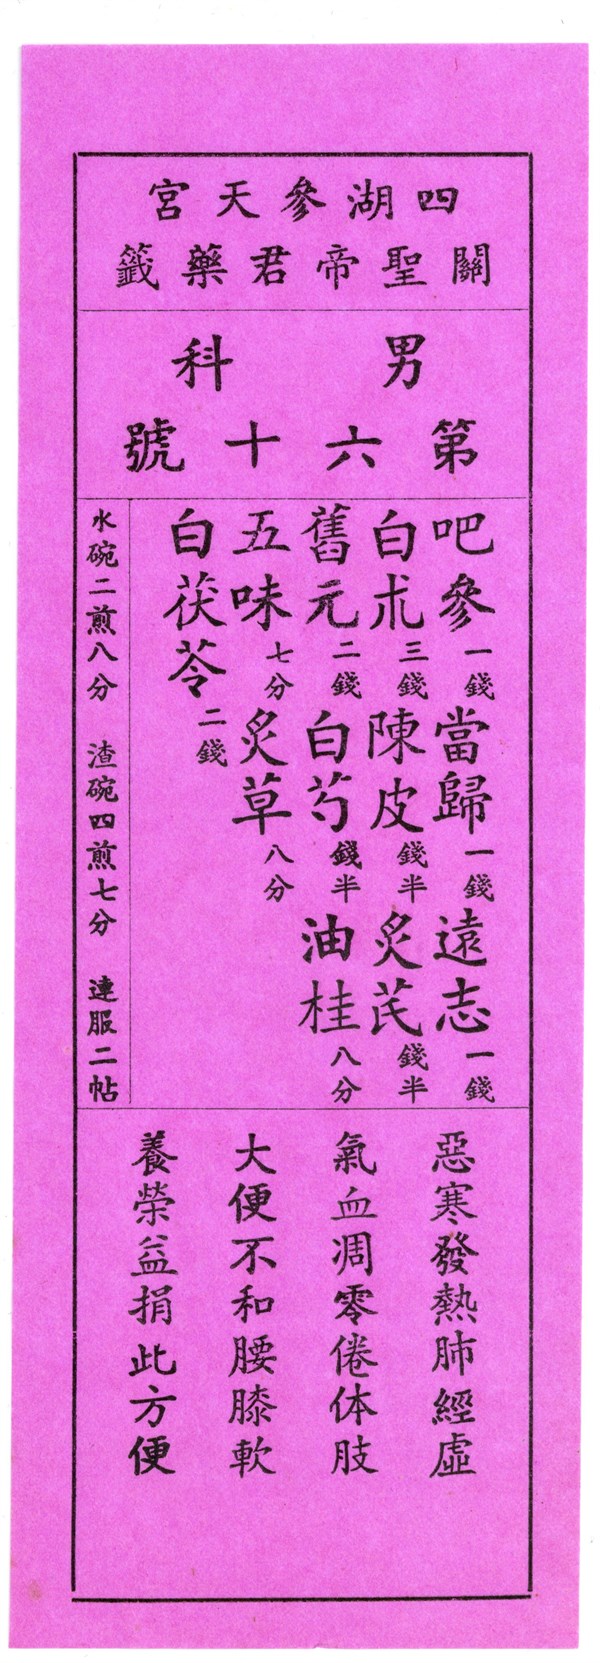 四湖參天宮
關聖帝君藥籤
男科
第六十號
吧參一錢 當歸一錢 遠志一錢
白朮三錢 陳皮錢半 炙芪錢半
舊元二錢 白芍錢半 油桂八分
五味七分 炙草八分
白茯苓二錢
水碗二煎八分 渣碗四煎七分 連服二帖
惡寒發熱肺經虛
氣血凋零倦体肢
大便不和腰膝軟
養榮益捐此方便